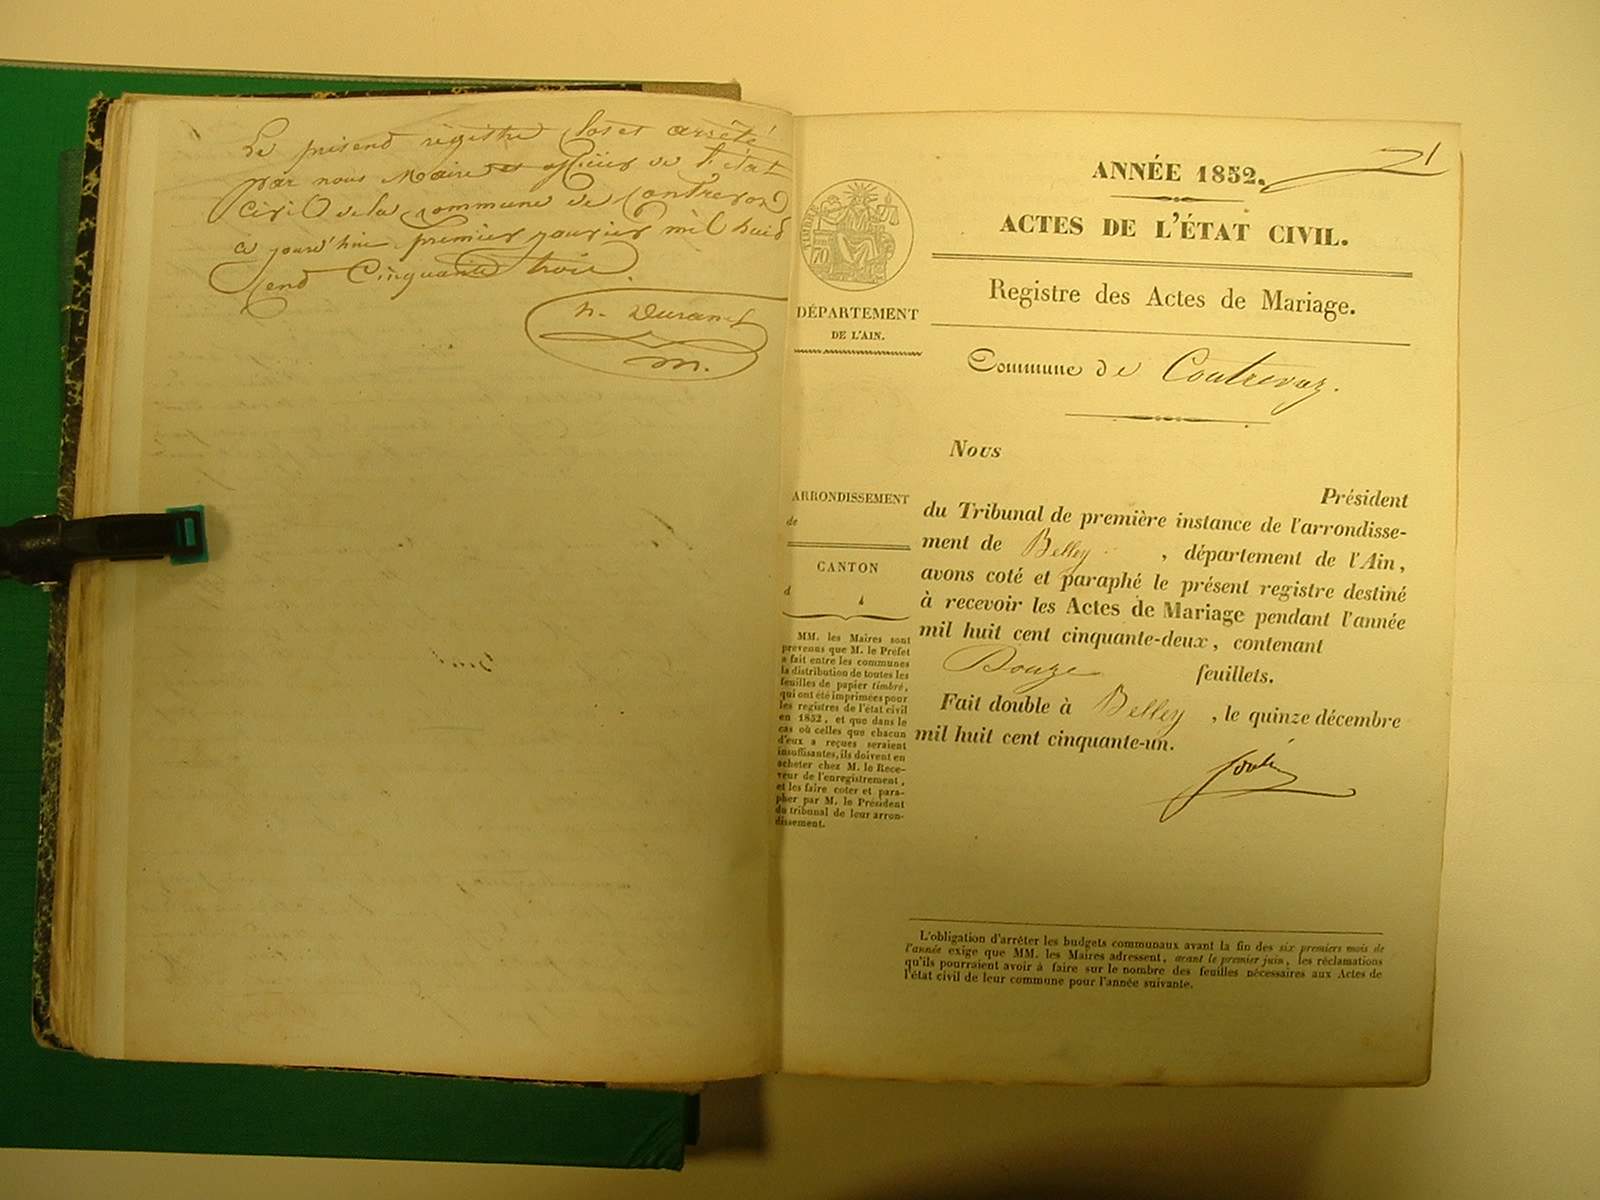 Le présend régistre clos et arrêté
par nous Maire et officier de l'état
civil de la commune de Contrevoz
a jourd'hui premier janvier mil huid
cend Cinquante trois.
h. Durand
m.
1
ANNÉE 1852.
ACTES DE L'ÉTAT CIVIL.
Registre des Actes de Mariage.
TIMBRE
70
DÉPARTEMENT
DE L'AIN.
Commune de Contrevoz.
Nous
Président
du Tribunal de première instance de l'arrondisse-
ment de Belley , département de l'Ain,
avons coté et paraphé le présent registre destiné
à recevoir les Actes de Mariage pendant l'année
mil huit cent cinquante-deux, contenant
Douze feuillets.
Fait double à Belley , le quinze décembre
mil huit cent cinquante-un.
ARRONDISSEMENT
de
CANTON
d
MM. les Maires sont
prévenus que M. le Préfet
a fait entre les communes
la distribution de toutes les
feuilles de papier timbré,
qui ont été imprimées pour
les registres de l'état civil
en 1852, et que dans le
cas où celles que chacun
d'eux a reçues seraient
insuffisantes, ils doivent en
acheter chez M. le Rece-
veur de l'enregistrement,
et les faire coter et para-
pher par M. le Président
du tribunal de leur arron-
dissement.
L'obligation d'arrêter les budgets communaux avant la fin des six premiers mois de
l'année exige que MM. les Maires adressent, avant le premier juin, les réclamations
qu'ils pourraient avoir à faire sur le nombre des feuilles nécessaires aux Actes de
l'état civil de leur commune pour l'année suivante.